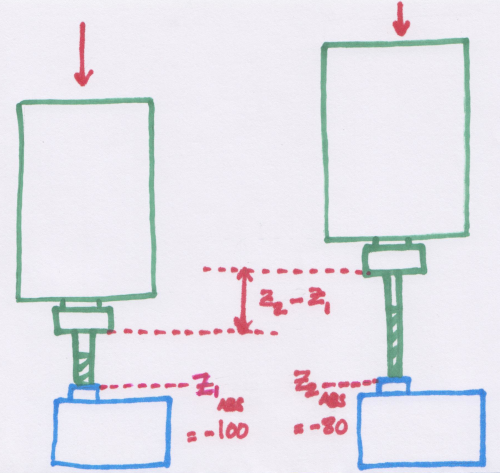 Z₂ - Z₁
Z₁ ABS
= -100
Z₂ ABS
= -80